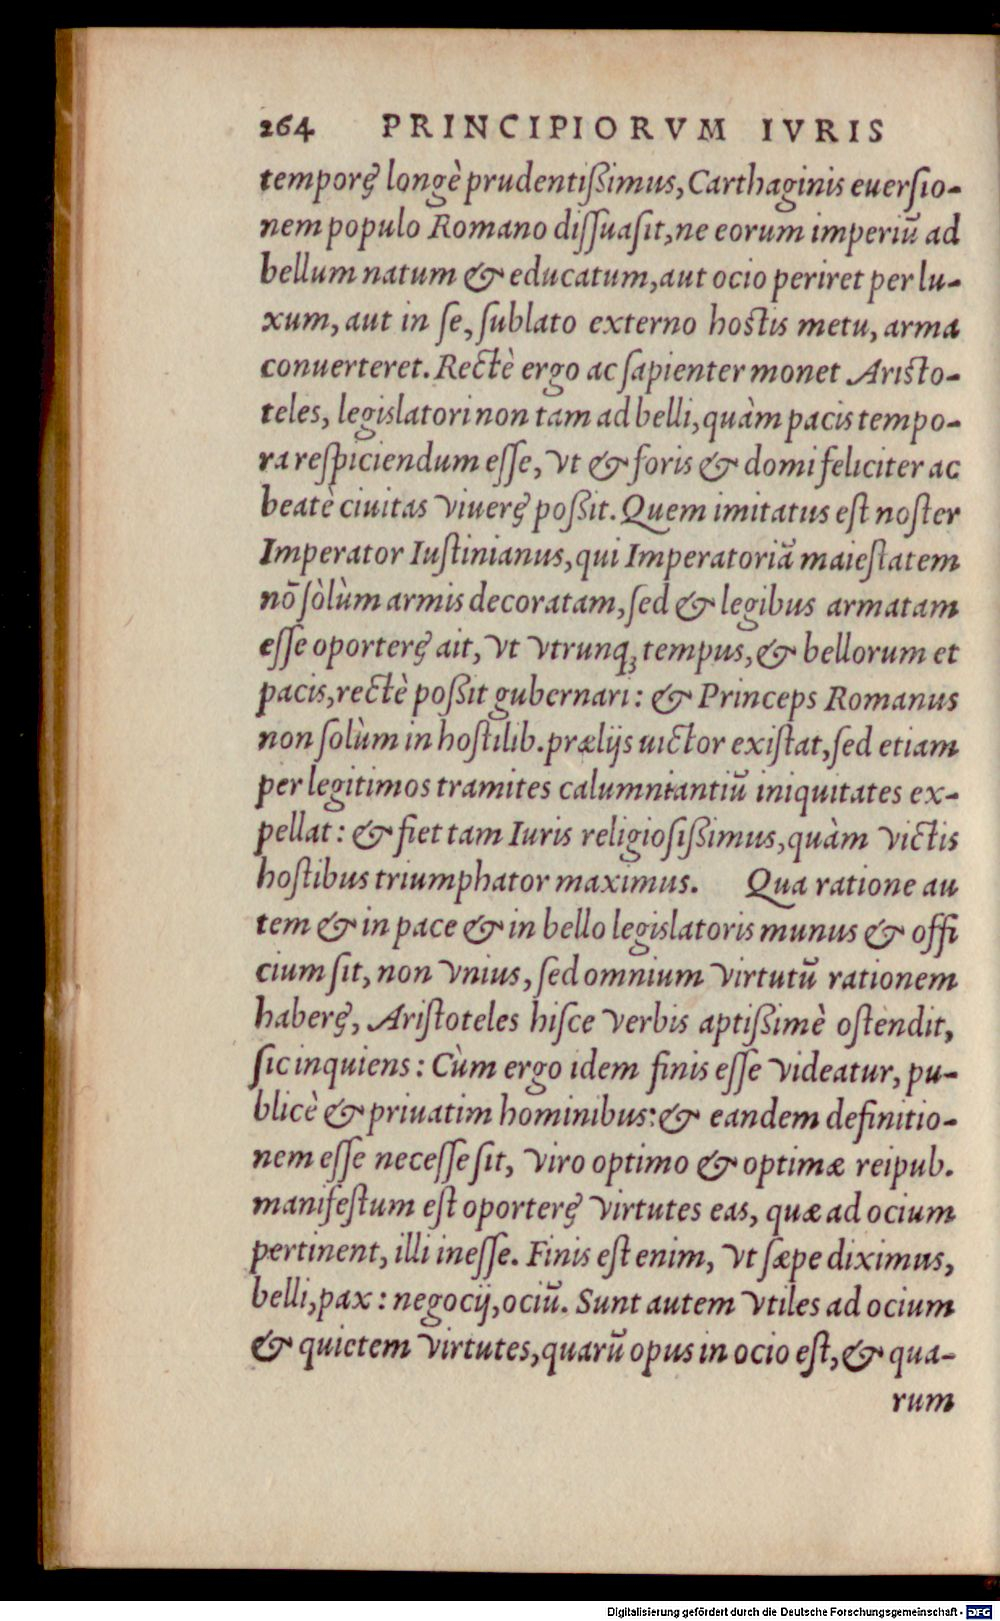 264 PRINCIPIORVM IVRIS
temporę longè prudentißimus, Carthaginis euerſio-
nem populo Romano diſſuaſit, ne eorum imperiũ ad
bellum natum & educatum, aut ocio periret per lu-
xum, aut in ſe, ſublato externo hostis metu, arma
conuerteret. Rectè ergo ac ſapienter monet Aristo-
teles, legislatori non tam ad belli, quàm pacis tempo-
ra reſpiciendum eſſe, vt & foris & domi feliciter ac
beatè ciuitas viuerę poßit. Quem imitatus eſt noſter
Imperator Iuſtinianus, qui Imperatoriã maieſtatem
nõ ſòlùm armis decoratam, ſed & legibus armatam
eſſe oporterę ait, vt vtrunq; tempus, & bellorum et
pacis, rectè poßit gubernari: & Princeps Romanus
non ſolùm in hoſtilib. prælijs uictor exiſtat, ſed etiam
per legitimos tramites calumniantiũ iniquitates ex-
pellat: & fiet tam Iuris religioſißimus, quàm victis
hoſtibus triumphator maximus. Qua ratione au
tem & in pace & in bello legislatoris munus & offi
cium ſit, non vnius, ſed omnium virtutũ rationem
haberę, Ariſtoteles hiſce verbis aptißimè oſtendit,
ſic inquiens: Cùm ergo idem finis eſſe videatur, pu-
blicè & priuatim hominibus: & eandem definitio-
nem eſſe neceſſe ſit, viro optimo & optimæ reipub.
manifeſtum eſt oporterę virtutes eas, quæ ad ocium
pertinent, illi ineſſe. Finis eſt enim, vt ſæpe diximus,
belli, pax: negocij, ociũ. Sunt autem vtiles ad ocium
& quietem virtutes, quarũ opus in ocio eſt, & qua-
rum
Digitalisierung gefördert durch die Deutsche Forschungsgemeinschaft - DFG